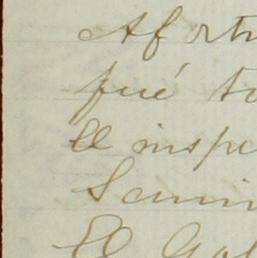 Afortu
fué to
El inspe
Semin
El Gob